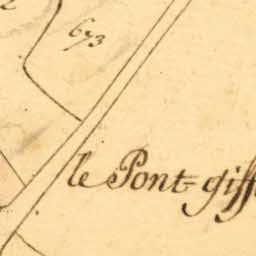 673
le Pont-giff